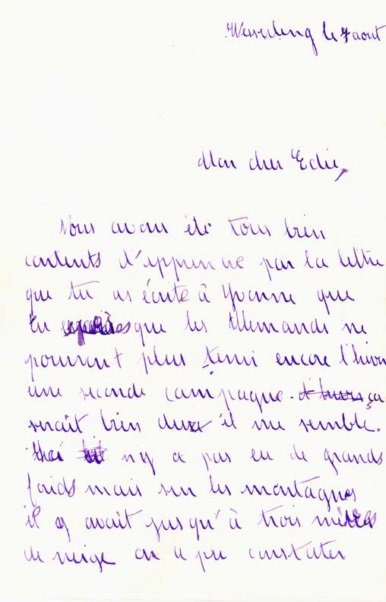 Wesserling le 7 aout
Mon cher Edie,
Nous avons été tous bien
contents d'apprendre par la lettre
que tu as écrite à Yvonne que
tu espères que les Allemands ne
pourront plus tenir encore l'hiver
une seconde campagne ça
serait bien dur il me semble.
n'y a pas eu de grands
froids mais sur les montagnes
il y avait jusqu'à trois mètres
de neige on a pu constater